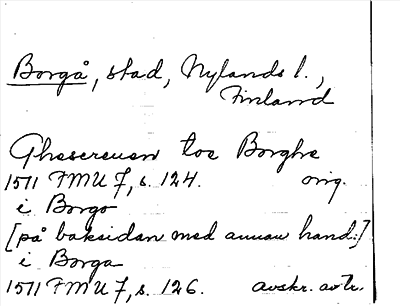 Borgå, stad, Nylands l.,
Finland
Ghesereuen toe Borghe
1511 FMU 7, s. 124. orig.
i Borgo
[på baksidan med annan hand:]
i Borga
1511 FMU 7, s. 126. avskr. av tr.